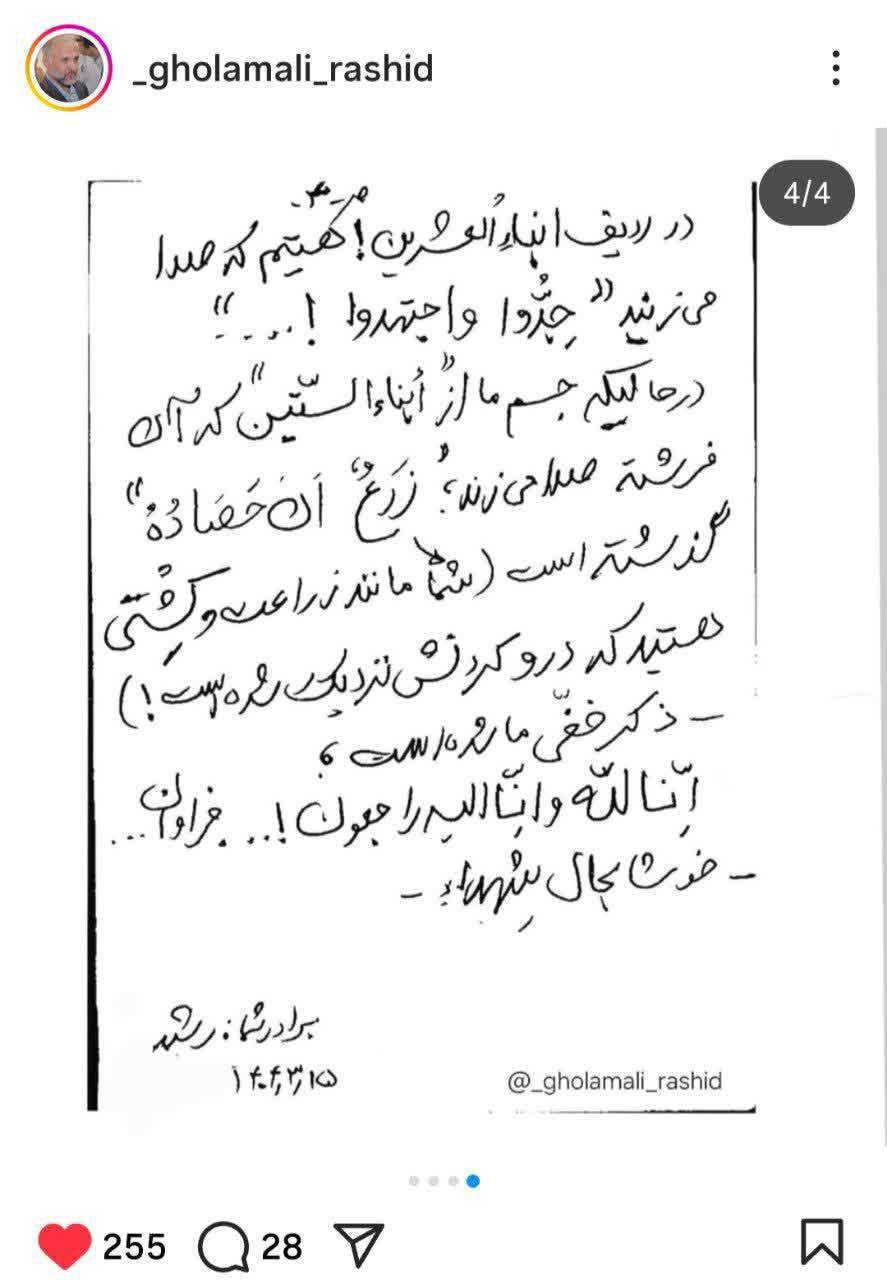 _gholamali_rashid
4/4
ص-۳-
در ردیف ابناءُ العشرین! گفتیم که صدا
می‌زنند "جِدُّوا واجتهدوا !...."
درحالیکه جسم ما از "أبناءالستّین" که آن
فرشته صدا می‌زند؛ "زَرَعٌ اَنَ حَصَادُهُ"
گذشته است (شما مانند زراعت و کِشتی
هستید که درو کردنش نزدیک شده است!)
– ذکر خفیّ ما شده است؛
اِنّا لله وانّا الیه راجعون!... فراوان...
– خوشا بحال شهداء –
برادر شما: رشید
۱۴۰۴,۳,۱۵
@_gholamali_rashid
255 28